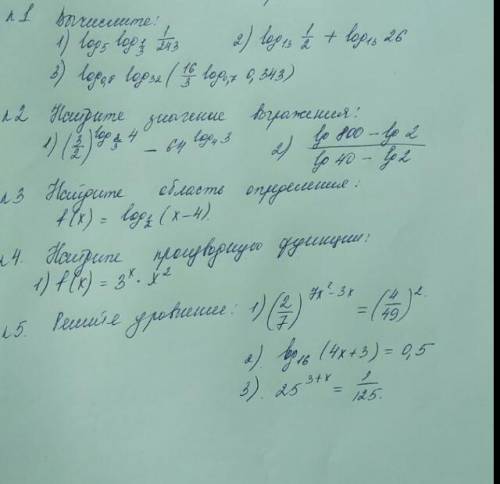 п1 Вычислите:
1) log₅ log_{1/3} 1/243   2) log₁₃ 1/2 + log₁₃ 26
3) log₀,₈ log₃₂ (16/3 log₀,₇ 0,343)
п2 Найдите значение выражения:
1) (3/2)^{log_{2/3} 4} - 64^{log₄ 3}   2) (lg 800 - lg 2)/(lg 40 - lg 2)
п3 Найдите область определения:
f(x) = log_{1/2} (x-4).
п4. Найдите производную функции:
1) f(x) = 3^x · x²
п5. Решите уравнение: 1) (2/7)^{7x²-3x} = (4/49)².
2). log₁₆ (4x+3) = 0,5
3). 25^{3+x} = 1/125.